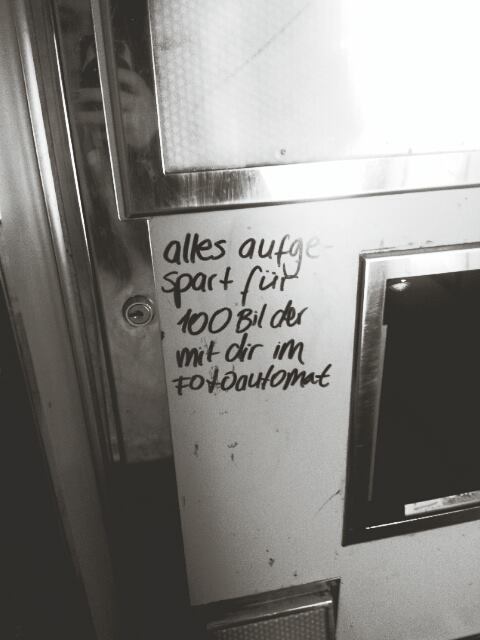 alles aufge-
spart für
100 Bilder
mit dir im
Fotoautomat